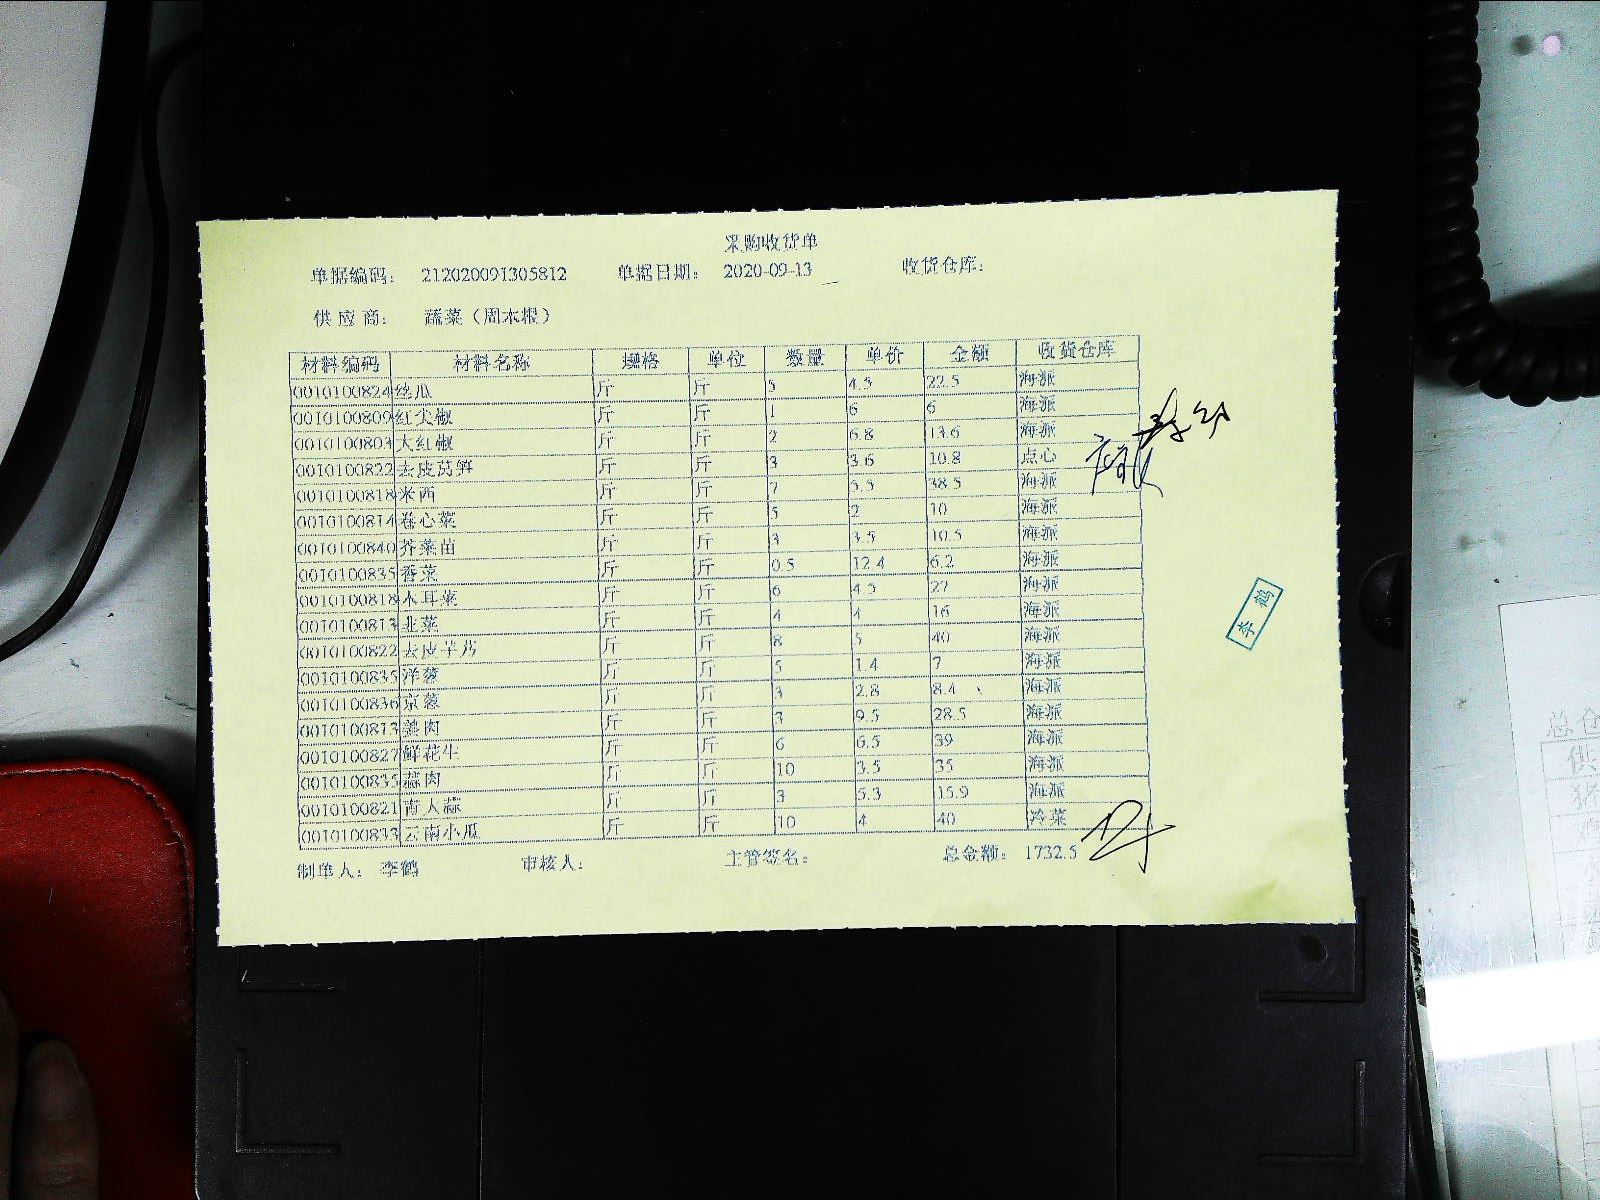 采购收货单
单据编码： 212020091305812 单据日期： 2020-09-13 收货仓库：
供应商： 蔬菜（周本根）
材料编码 材料名称 规格 单位 数量 单价 金额 收货仓库
0010100824 丝瓜 斤 斤 5 4.5 22.5 海派
0010100809 红尖椒 斤 斤 1 6 6 海派
0010100803 大红椒 斤 斤 2 6.8 13.6 海派
0010100822 去皮莴笋 斤 斤 3 3.6 10.8 点心
0010100818 米西 斤 斤 7 5.5 38.5 海派
0010100814 卷心菜 斤 斤 5 2 10 海派
0010100840 芥菜苗 斤 斤 3 3.5 10.5 海派
0010100835 香菜 斤 斤 0.5 12.4 6.2 海派
0010100818 木耳菜 斤 斤 6 4.5 27 海派
0010100813 韭菜 斤 斤 4 4 16 海派
0010100822 去皮芋艿 斤 斤 8 5 40 海派
0010100835 洋葱 斤 斤 5 1.4 7 海派
0010100836 京葱 斤 斤 3 2.8 8.4 海派
0010100813 姜肉 斤 斤 3 9.5 28.5 海派
0010100827 鲜花生 斤 斤 6 6.5 39 海派
0010100835 蒜肉 斤 斤 10 3.5 35 海派
0010100821 斤 斤 3 5.3 15.9 海派
0010100833 云南小瓜 斤 斤 10 4 40 冷菜
制单人： 李鹤 审核人： 主管签名： 总金额： 1732.5
李鹤
总仓
供